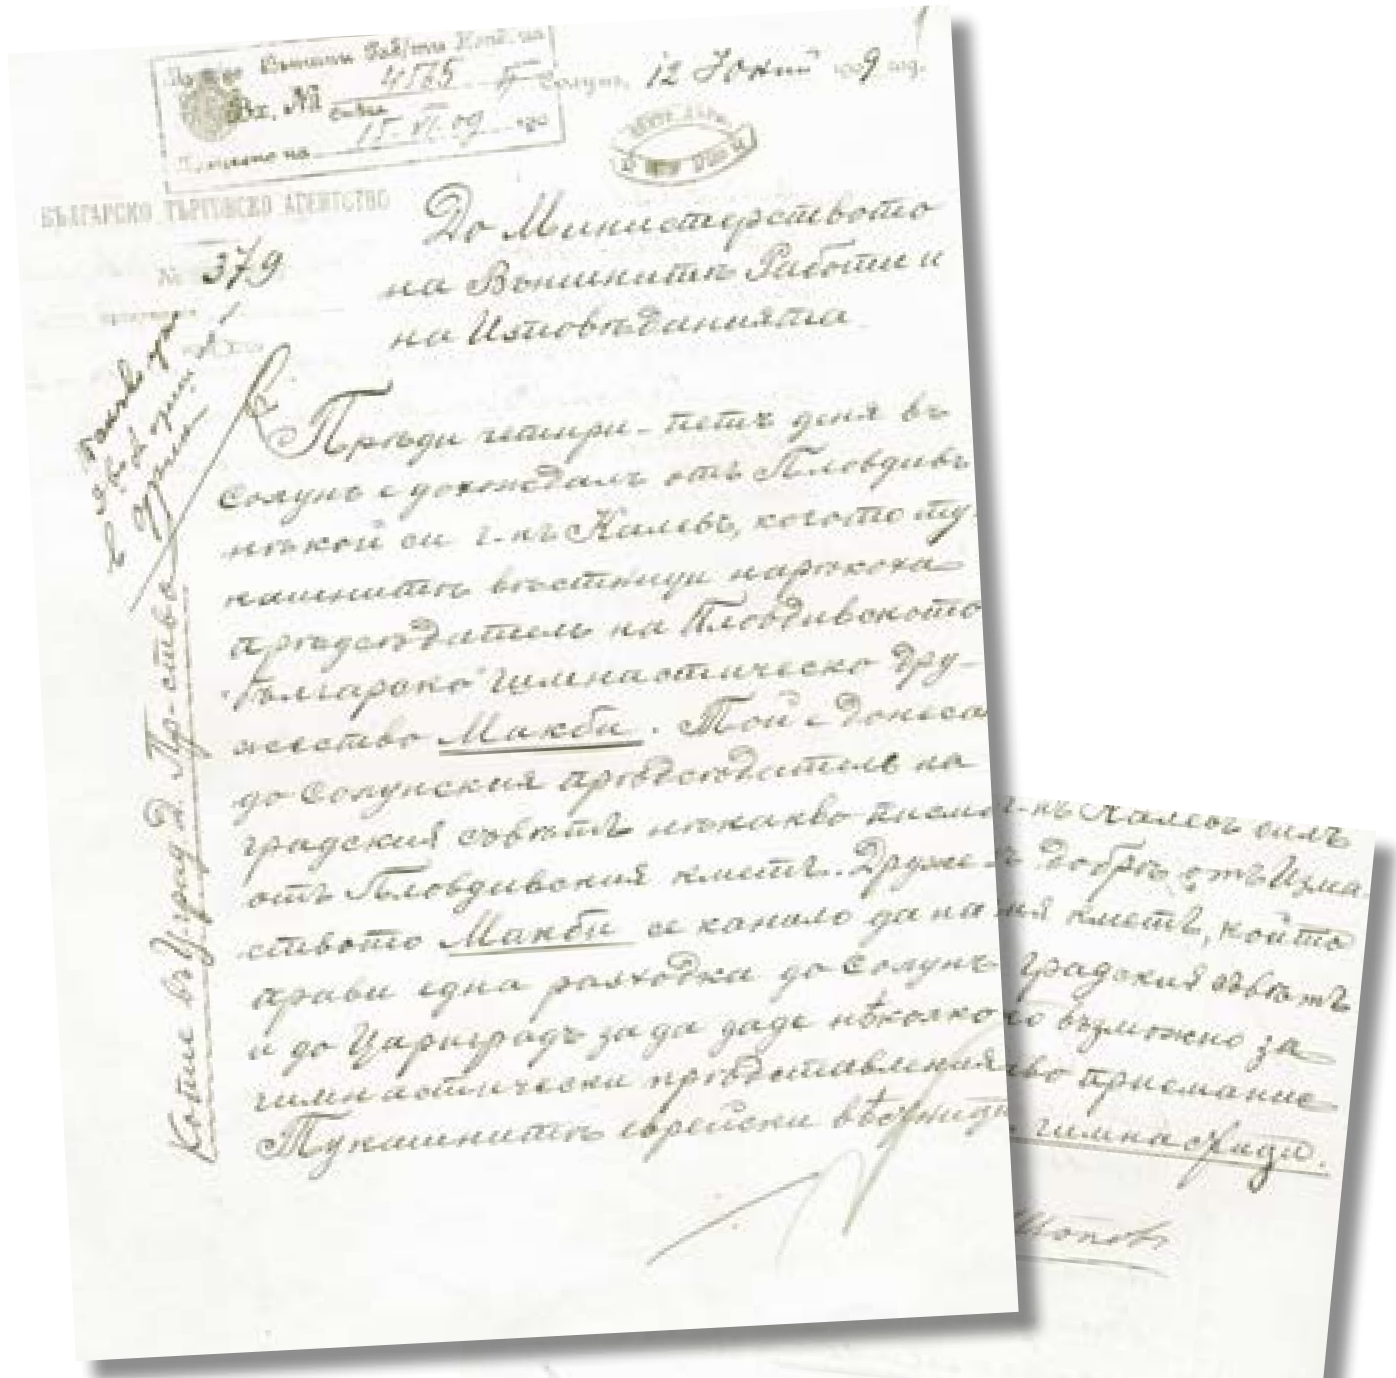 Вх. №
4585
15.VI.09
Солунъ, 12 Юний 1909 год.
БЪЛГАРСКО ТЪРГОВСКО АГЕНТСТВО
№ 379
До Министерството
на Външнитѣ Работи и
на Изповѣданията
Прѣди четири-петь дня въ
Солунъ е дохождалъ отъ Пловдивъ
нѣкой си г-нъ Калевъ, когото ту-
кашнитѣ вѣстници нарѣкоха
прѣдсѣдатель на Пловдивското
"българско" гимнастическо дру-
жество Макби. Той е донесълъ
до Солунския прѣдсѣдатель на
градския съвѣтъ нѣкакво писмо
отъ Пловдивския кметъ. Друже-
ството Макби се канило да на-
прави една разходка до Солунъ
и до Цариградъ за да даде нѣколко
гимнастически прѣдставления
Тукашнитѣ еврейски вѣстници
Копие въ Ц-град Д. Пр-ство
г-нъ Калевъ билъ
добрѣ отъ Изма-
ия кметъ, който
градския съвѣтъ
възможно за
приемание
гимнастици.
Шоповъ